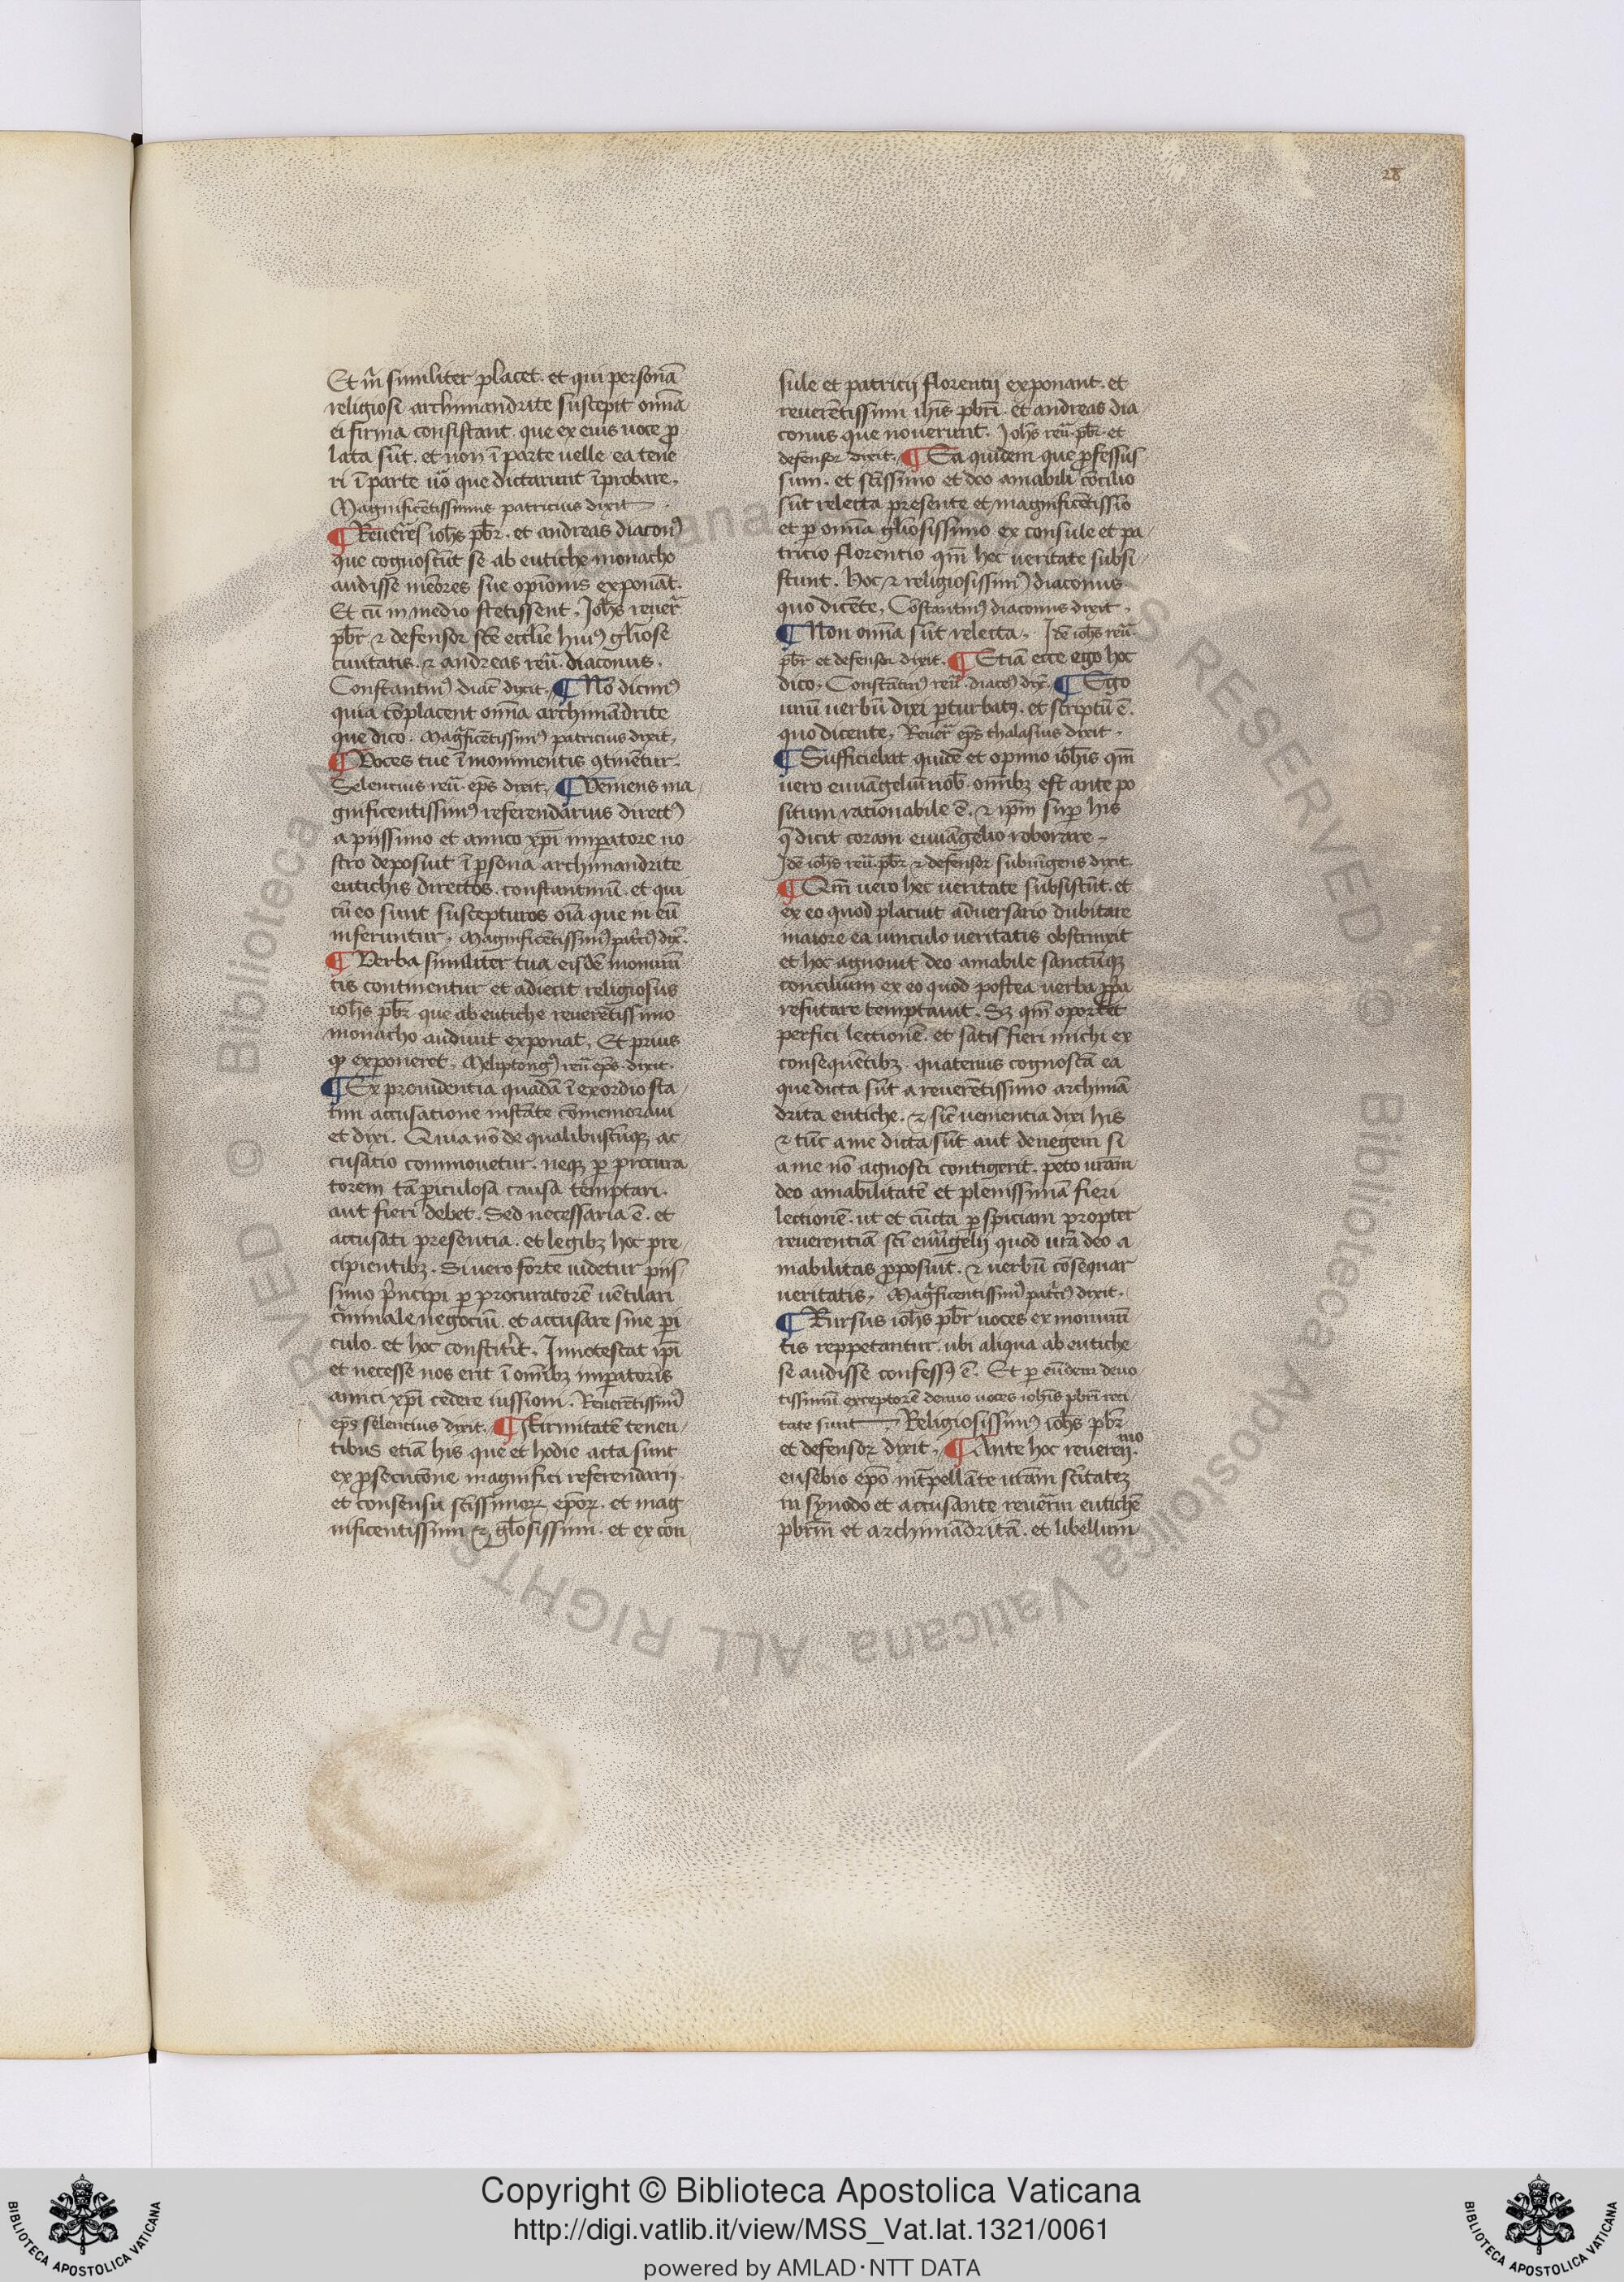 28
Et m̃ similiter placet. et qui personã
religiosi archimandrite suscepit om̃ia
ei firma consistant. que ex eius uoce p̱ro
lata sũt. et non ĩ parte uelle ea tene
ri ĩ parte uõ que dictarunt ĩprobare.
Magnificẽtissimus patricius dixit
¶ Reuerẽs ioh̃s pb̃r. et andreas diaconꝰ
que cognoscũt se ab eutiche monacho
audisse meõres sue opiõnis exponãt.
Et cũ in medio stetissent. Joh̃s reuer̃
pb̃r ⁊ defensor sc̃e eccl̃ie huiꝰ gl̃iose
ciuitatis. ⁊ andreas reũ. diaconus.
Constantinꝰ diac̃ dixit. ¶ Nõ dicimꝰ
quia cõplacent om̃ia archimãdrite
que dico. Mag̃ficẽtissimꝰ patricius dixit.
¶ Voces tue ĩ monimentis ꝯtinẽtur.
Seleucius reũ. ep̃s dixit. ¶ Veniens ma
gnificentissimꝰ referendarius directꝰ
a piissimo et amico xp̃i imperatore no
stro deposuit ĩ ꝑsona archimandrite
eutichis directos. constantinũ. et qui
cũ eo sunt suscepturos oĩa que in eũ
inferuntur. Magnificẽtissimꝰ pat̃ciꝰ dix̃.
¶ Verba similiter tua eisdẽ monimẽ
tis continentur et adiecit religiosus
ioh̃s pb̃r que ab eutiche reuerẽtissimo
monacho audiuit exponat. Et prius
qͣ exponeret. Meliptongꝰ reũ. ep̃s. dixit.
¶ Ex prouidentia quadã ĩ exordio sta
tim accusatione instãte cõmemoraui
et dixi. Quia nõ de qualibuscũqꝫ ac
cusatio commouetur. neqꝫ ꝑ procura
torem tã ꝑiculosa causa temptari.
aut fieri debet. Sed necessaria ẽ. et
accusati presentia. et legibꝫ hoc pre
cipientibꝫ. Si uero forte uidetur piis
simo pͥncipi ꝑ procuratorẽ uẽtilari
cͥminale negociũ. et accusare sine ꝑi
culo. et hoc constitͥit. Innotescat ip̃i
et necesse nos erit ĩ om̃ibꝫ imperatoris
amici xp̃i cedere iussioni. Reuerẽtissimꝰ
ep̃s seleucius dixit. ¶ Firmitatẽ tenen
tibus etiã his que et hodie acta sunt
ex ꝓsecucõne magnifici referendarij.
et consensu sc̃issimoꝝ ep̃oꝝ. et mag
nificentissimi ⁊ gl̃osissimi. et ex con
sule et patricij florentij exponant. et
reuerẽtissimi ioh̃is pb̃ri. et andreas dia
conus que nouerunt. Joh̃s reũ. pb̃r. et
defensor dixit. ¶ Ea quidem que ꝓfessus
sum. et sc̃issimo et deo amabili cõcilio
sũt relecta presente et magnificẽtissĩo
et ꝑ om̃ia gl̃iosissimo ex consule et pa
tricio florentio qm̃ hec ueritate subsi
stunt. Hoc ⁊ religiosissimꝰ diaconus
quo dicẽte. Cõstantinꝰ diaconus dixit.
¶ Non om̃ia sũt relecta. Idẽ ioh̃s reũ.
pb̃r et defensor dixit. ¶ Etiã ecce ego hoc
dico. Constãtinꝰ reũ. diacoꝰ dix̃. ¶ Ego
unũ uerbũ dixi ꝑturbatꝰ. et scriptũ ẽ.
quo dicente. Reuer̃ ep̃s thalasius dixit.
¶ Sufficiebat quidẽ et opinio ioh̃is qm̃
uero euuãgeliũ nob̃. om̃ibꝫ est ante po
situm rationabile ẽ. ⁊ ip̃m suꝑ his
q̃ dicit coram euuãgelio roborare.
Idẽ ioh̃s reũ. pb̃r ⁊ defensor subiũgens dixit.
¶ Qm̃ uero hec ueritate subsistũt. et
ex eo quod placuit aduersario dubitare
maiore ea uinculo ueritatis obstrinxit
et hoc agnouit deo amabile sanctũqꝫ
concilium ex eo quod postea uerba ꝓpria
refutare temptauit. Sꝫ qm̃ oportet
perfici lectionẽ. et satis fieri michi ex
consequẽtibꝫ. quatenus cognoscã ea
que dicta sũt a reuerẽtissimo archimã
drita eutiche. ⁊ sic uementia dixi his
⁊ tũc a me dicta sũt aut denegem si
a me nõ agnosci contigerit. peto ur̃am
deo amabilitatẽ et plenissimã fieri
lectionẽ. ut et cũcta ꝑspiciam propter
reuerentiã sc̃i euũgelij quod ur̃a deo a
mabilitas ꝓposuit. ⁊ uerbũ cõsequar
ueritatis. Mag̃ficentissimꝰ pat̃ciꝰ dixit.
¶ Rursus ioh̃s pb̃r uoces ex monimẽ
tis reppetantur. ubi aliqua ab eutiche
se audisse confessꝰ ẽ. Et ꝑ eũdem deuo
tissimũ exceptorẽ denuo uoces ioh̃is pb̃ri reci
tate sunt Religiosissimꝰ ioh̃s pb̃r
et defensor dixit. ¶ Ante hoc reuerenmo
eusebio ep̃o int̃pellãte ur̃am sc̃itatẽ
in synodo et accusante reuer̃m eutichẽ
pb̃rm̃ et archimãdritã. et libellum
Copyright © Biblioteca Apostolica Vaticana
http://digi.vatlib.it/view/MSS_Vat.lat.1321/0061
powered by AMLAD·NTT DATA
BIBLIOTECA APOSTOLICA VATICANA
BIBLIOTECA APOSTOLICA VATICANA